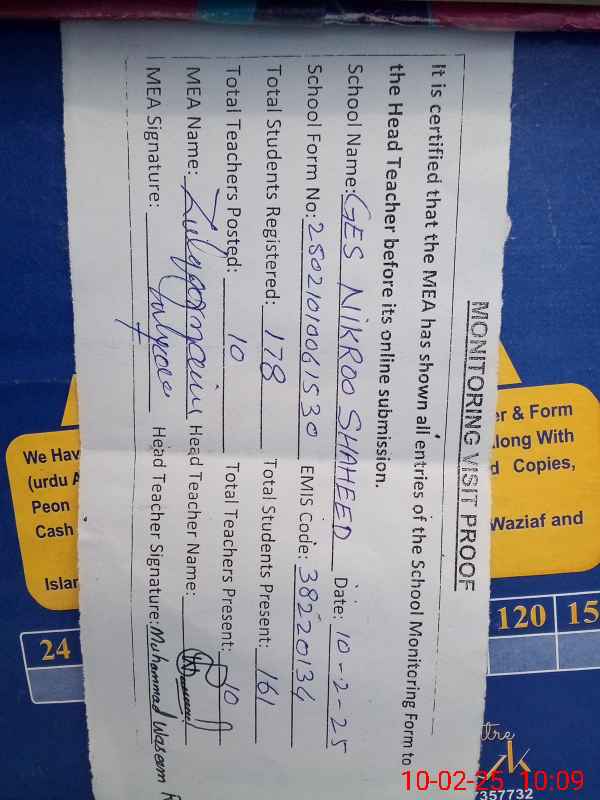 MONITORING VISIT PROOF
It is certified that the MEA has shown all entries of the School Monitoring Form to
the Head Teacher before its online submission.
School Name: GES NIKROO SHAHEED Date: 10-2-25
School Form No: 28021010061530 EMIS Code: 38220134
Total Students Registered: 178 Total Students Present: 161
Total Teachers Posted: 10 Total Teachers Present: 10
MEA Name: Head Teacher Name:
MEA Signature: Head Teacher Signature: Muhammad Waseem
er & Form
long With
d Copies,
Waziaf and
We Hav
(urdu A
Peon
Cash
Islar
120 15
24
tre
7357732
10-02-25 10:09